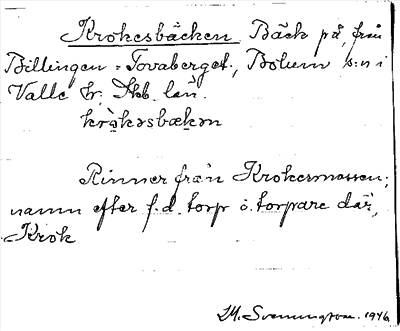 Krokesbäcken Bäck på, från
Billingen = Tovaberget, Bolum s:n i
Valle hr. Skb. län.
krọ̀kəsbækən
Rinner från Krokesmossen;
namn efter f.d. torp o. torpare där,
Krok
M. Svenungsson. 1946